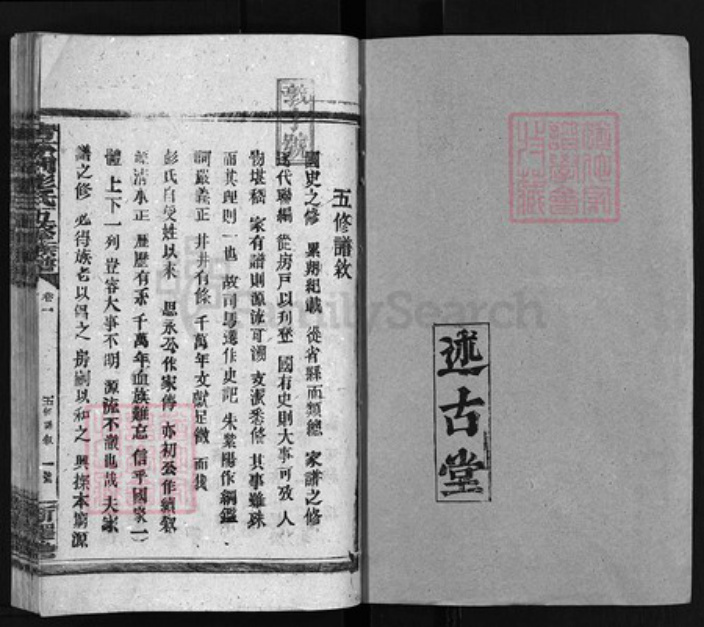 述古堂
五修譜敘
國史之修 累朝紀載 從省縣而類總 家譜之修
代聯編 從房戶以列登 國有史則大事可攷 人
物堪稽 家有譜則源流可溯 支派悉修 其事雖殊
而其理則一也 故司馬遷作史記 朱紫陽作綱鑑
詞嚴義正 井井有條 千萬年文獻足徵 而我
彭氏自受姓以來 思永公作家傳 亦初公作續敘
清本正 歷歷有 千萬年血族難忘 信乎國家一
體 上下一列 豈容大事不明 源流不澈也哉 夫家
譜之修 必得族老以倡之 房嗣以和之 興探本窮源
彭氏五修族譜
卷一
五修譜敘
一
號
FamilySearch